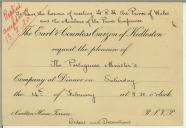 To have the honour of meeting H.R.H. the Prince of Wales
and the Members of the Peace Conference
The Earl & Countess Curzon of Kedleston
request the pleasure of
The Portuguese Minister's
Company at Dinner on Saturday
the 14th of February at 8.30 o'clock
Carlton House Terrace.
R.S.V.P.
Orders and Decorations